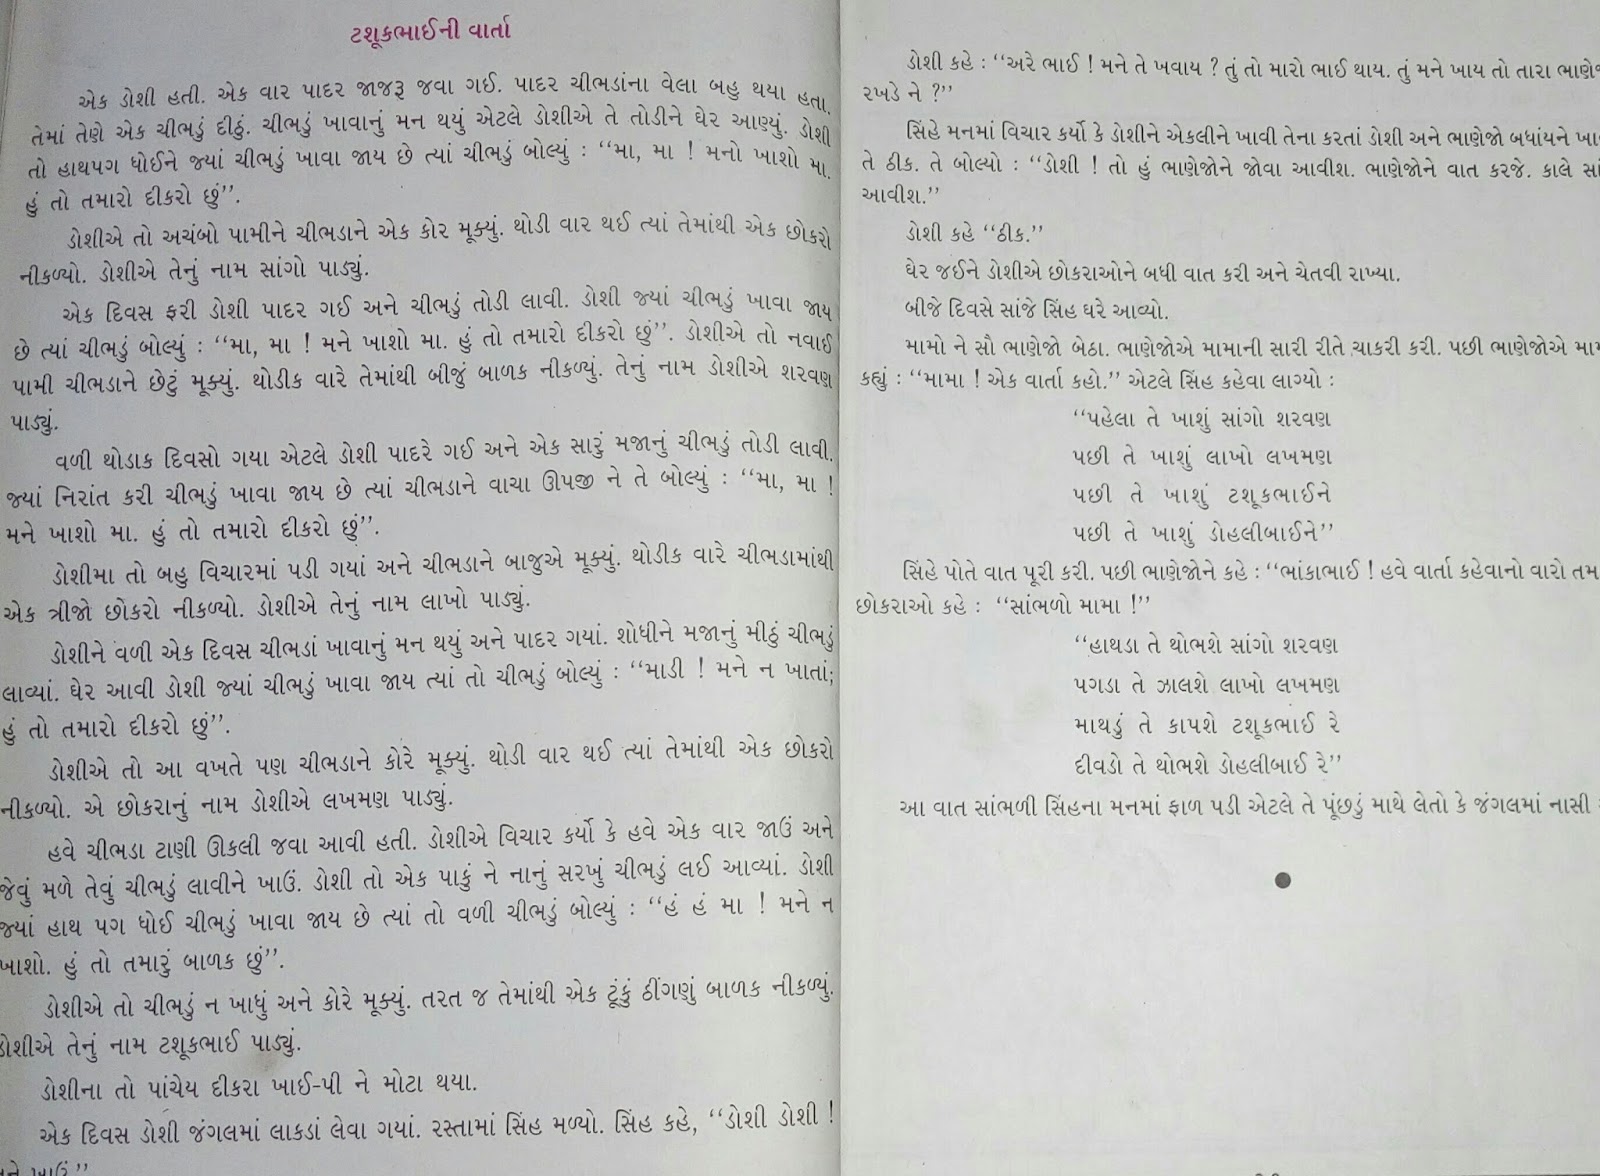 ટશૂકભાઈની વાર્તા
એક ડોશી હતી. એક વાર પાદર જાજરૂ જવા ગઈ. પાદર ચીભડાંના વેલા બહુ થયા હતા.
તેમાં તેણે એક ચીભડું દીઠું. ચીભડું ખાવાનું મન થયું એટલે ડોશીએ તે તોડીને ઘેર આણ્યું. ડોશી
તો હાથપગ ધોઈને જ્યાં ચીભડું ખાવા જાય છે ત્યાં ચીભડું બોલ્યું : “મા, મા ! મનો ખાશો મા.
હું તો તમારો દીકરો છું”.
ડોશીએ તો અચંબો પામીને ચીભડાને એક કોર મૂક્યું. થોડી વાર થઈ ત્યાં તેમાંથી એક છોકરો
નીકળ્યો. ડોશીએ તેનું નામ સાંગો પાડ્યું.
એક દિવસ ફરી ડોશી પાદર ગઈ અને ચીભડું તોડી લાવી. ડોશી જ્યાં ચીભડું ખાવા જાય
છે ત્યાં ચીભડું બોલ્યું : “મા, મા ! મને ખાશો મા. હું તો તમારો દીકરો છું”. ડોશીએ તો નવાઈ
પામી ચીભડાને છેટું મૂક્યું. થોડીક વારે તેમાંથી બીજું બાળક નીકળ્યું. તેનું નામ ડોશીએ શરવણ
પાડ્યું.
વળી થોડાક દિવસો ગયા એટલે ડોશી પાદરે ગઈ અને એક સારું મજાનું ચીભડું તોડી લાવી.
જ્યાં નિરાંત કરી ચીભડું ખાવા જાય છે ત્યાં ચીભડાને વાચા ઊપજી ને તે બોલ્યું : “મા, મા !
મને ખાશો મા. હું તો તમારો દીકરો છું”.
ડોશીમા તો બહુ વિચારમાં પડી ગયાં અને ચીભડાને બાજુએ મૂક્યું. થોડીક વારે ચીભડામાંથી
એક ત્રીજો છોકરો નીકળ્યો. ડોશીએ તેનું નામ લાખો પાડ્યું.
ડોશીને વળી એક દિવસ ચીભડાં ખાવાનું મન થયું અને પાદર ગયાં. શોધીને મજાનું મીઠું ચીભડું
લાવ્યાં. ઘેર આવી ડોશી જ્યાં ચીભડું ખાવા જાય ત્યાં તો ચીભડું બોલ્યું : “માડી ! મને ન ખાતાં;
હું તો તમારો દીકરો છું”.
ડોશીએ તો આ વખતે પણ ચીભડાને કોરે મૂક્યું. થોડી વાર થઈ ત્યાં તેમાંથી એક છોકરો
નીકળ્યો. એ છોકરાનું નામ ડોશીએ લખમણ પાડ્યું.
હવે ચીભડા ટાણી ઊકલી જવા આવી હતી. ડોશીએ વિચાર કર્યો કે હવે એક વાર જાઉં અને
જેવું મળે તેવું ચીભડું લાવીને ખાઉં. ડોશી તો એક પાકું ને નાનું સરખું ચીભડું લઈ આવ્યાં. ડોશી
જ્યાં હાથ પગ ધોઈ ચીભડું ખાવા જાય છે ત્યાં તો વળી ચીભડું બોલ્યું : “હં હં મા ! મને ન
ખાશો. હું તો તમારું બાળક છું”.
ડોશીએ તો ચીભડું ન ખાધું અને કોરે મૂક્યું. તરત જ તેમાંથી એક ટૂંકું ઠીંગણું બાળક નીકળ્યું.
ડોશીએ તેનું નામ ટશૂકભાઈ પાડ્યું.
ડોશીના તો પાંચેય દીકરા ખાઈ-પી ને મોટા થયા.
એક દિવસ ડોશી જંગલમાં લાકડાં લેવા ગયાં. રસ્તામાં સિંહ મળ્યો. સિંહ કહે, “ડોશી ડોશી !
ડોશી કહે : “અરે ભાઈ ! મને તે ખવાય ? તું તો મારો ભાઈ થાય. તું મને ખાય તો તારા
રખડે ને ?”
સિંહે મનમાં વિચાર કર્યો કે ડોશીને એકલીને ખાવી તેના કરતાં ડોશી અને ભાણેજો બધાંયને
તે ઠીક. તે બોલ્યો : “ડોશી ! તો હું ભાણેજોને જોવા આવીશ. ભાણેજોને વાત કરજે. કાલે
આવીશ.”
ડોશી કહે “ઠીક.”
ઘેર જઈને ડોશીએ છોકરાઓને બધી વાત કરી અને ચેતવી રાખ્યા.
બીજે દિવસે સાંજે સિંહ ઘરે આવ્યો.
મામો ને સૌ ભાણેજો બેઠા. ભાણેજોએ મામાની સારી રીતે ચાકરી કરી. પછી ભાણેજોએ
કહ્યું : “મામા ! એક વાર્તા કહો.” એટલે સિંહ કહેવા લાગ્યો :
“પહેલા તે ખાશું સાંગો શરવણ
પછી તે ખાશું લાખો લખમણ
પછી તે ખાશું ટશૂકભાઈને
પછી તે ખાશું ડોહલીબાઈને”
સિંહે પોતે વાત પૂરી કરી. પછી ભાણેજોને કહે : “ભાંકાભાઈ ! હવે વાર્તા કહેવાનો વારો
છોકરાઓ કહે : “સાંભળો મામા !”
“હાથડા તે થોભશે સાંગો શરવણ
પગડા તે ઝાલશે લાખો લખમણ
માથડું તે કાપશે ટશૂકભાઈ રે
દીવડો તે થોભશે ડોહલીબાઈ રે”
આ વાત સાંભળી સિંહના મનમાં ફાળ પડી એટલે તે પૂંછડું માથે લેતો કે જંગલમાં નાસી